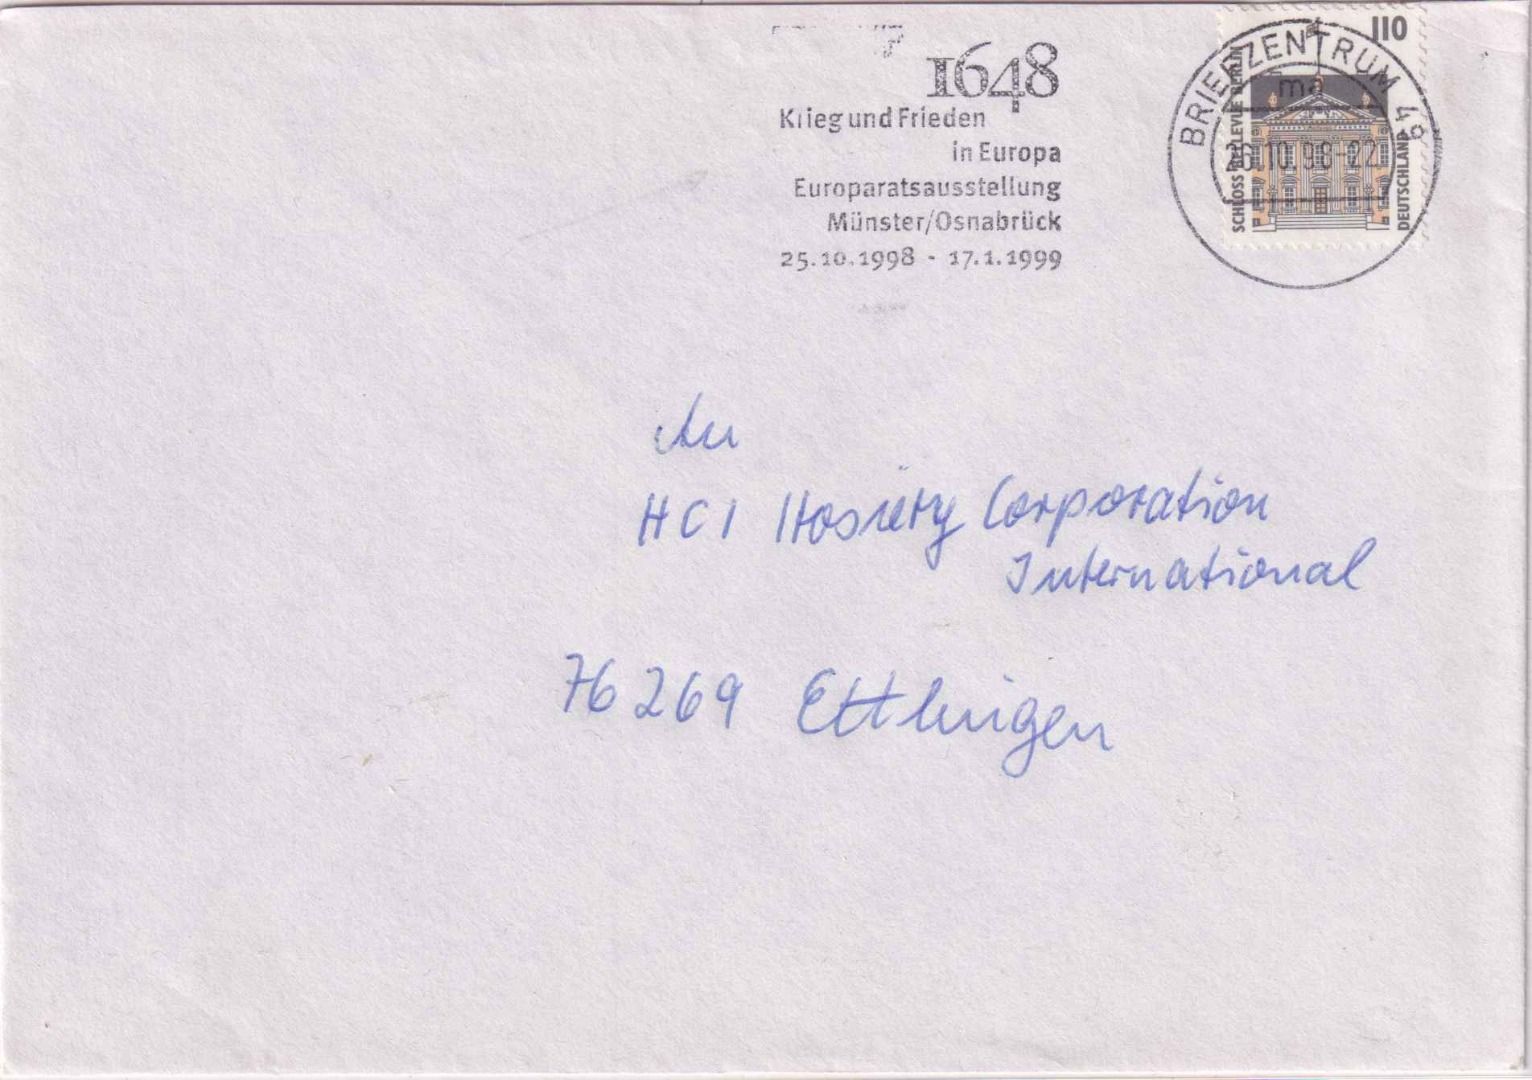 1648
Krieg und Frieden
in Europa
Europaratsausstellung
Münster/Osnabrück
25.10.1998 - 17.1.1999
BRIEFZENTRUM 49
ma
.10.98-22
110
SCHLOSS BELLEVUE BERLIN
DEUTSCHLAND
An
HCI Hosiery Corporation
International
76269 Ettlingen